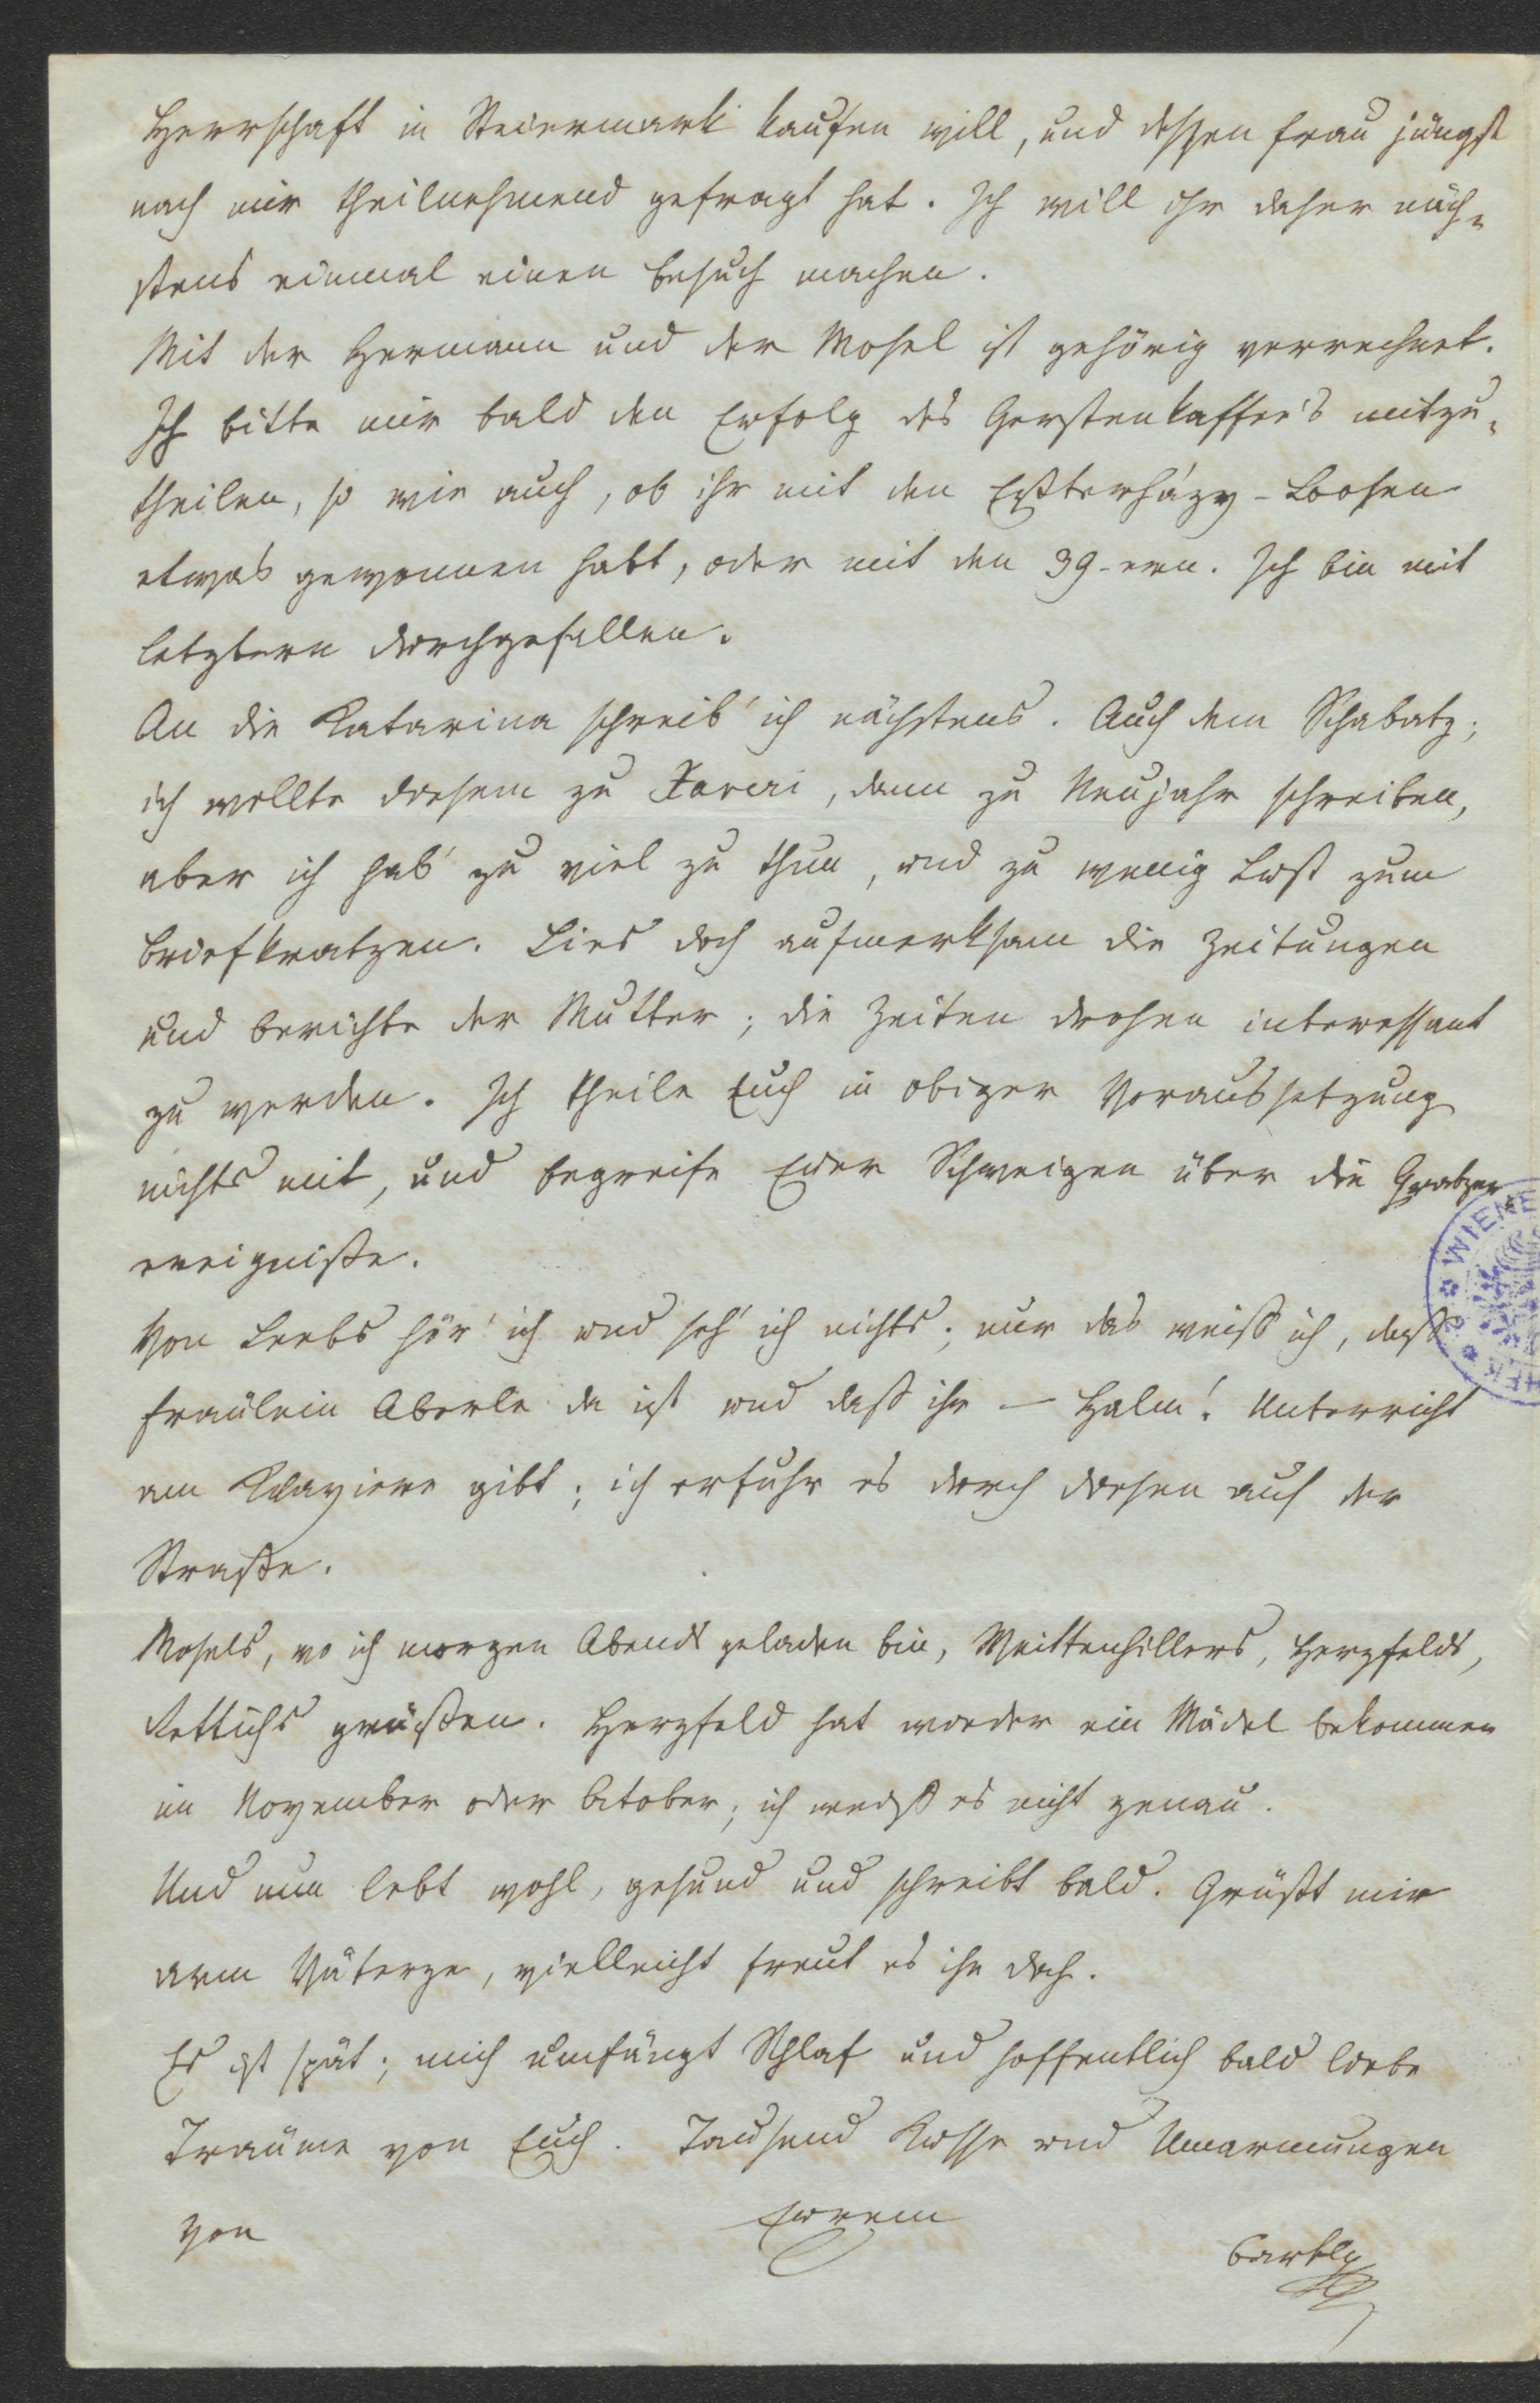 Herrschaft in Steiermark kaufen will, und dessen Frau jüngst
nach mir theilnehmend gefragt hat. Ich will ihr daher näch-
stens einmal einen Besuch machen.
Mit der Hermann und der Mosel ist gehörig verrechnet.
Ich bitte mir bald den Erfolg des Gerstenkaffee's mitzu-
theilen, so wie auch, ob ihr mit den Eszterházy-Loosen
etwas gewonnen habt, oder mit den 39-ern. Ich bin mit
letztern durchgefallen.
An die Katarina schreib' ich nächstens. Auch dem Schabatz;
ich wollte diesem zu Xaveri, dann zu Neujahr schreiben,
aber ich hab' zu viel zu thun, und zu wenig Lust zum
Briefkratzen. Lies doch aufmerksam die Zeitungen
und berichte der Mutter; die Zeiten drohen interessant
zu werden. Ich theile Euch in obiger Voraussetzung
nichts mit, und begreife Euer Schweigen über die Gratzer
ereigniße.
Von Leebs hör' ich und seh' ich nichts; nur das weiß ich, daß
Fraülein Aberle da ist und daß ihr – Halm! Unterricht
am Klaviere gibt; ich erfuhr es durch diesen auf der
Straße.
Mosels, wo ich morgen Abends geladen bin, Weittenhillers, Herzfelds,
Rettichs grüßen. Herzfeld hat wieder ein Mädel bekommen
im November oder October; ich weiß es nicht genau.
Und nun lebt wohl, gesund und schreibt bald. Grüßt mir
arm , vielleicht freut es ihn doch.
Es ist spät; mich umfängt Schlaf und hoffentlich bald liebe
Traüme von Euch. Tausend Küsse und Umarmungen
von Eurem
WIENE